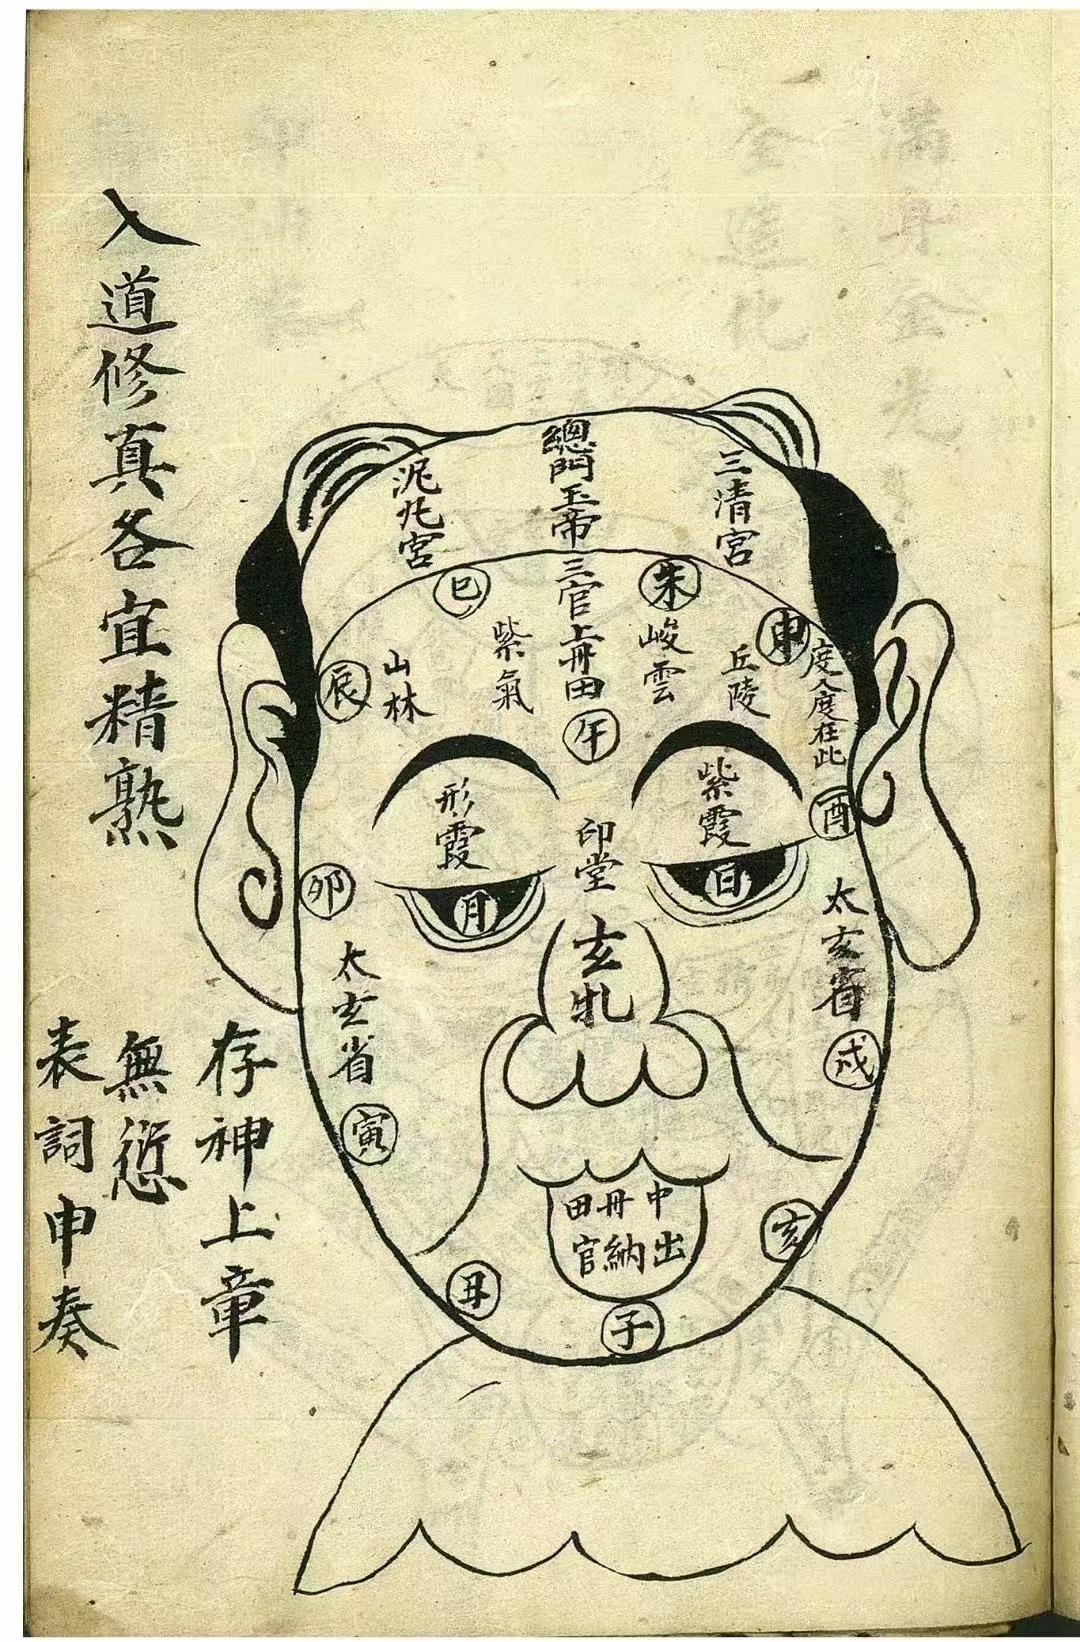 總門玉帝
三清宮
泥丸宮
三官上丹田
朱
巳
申
度人度在此
峻雲
紫氣
丘陵
山林
辰
午
酉
紫霞
形霞
印堂
日
月
卯
太玄省
太玄省
玄牝
戍
寅
中出
丹納
田官
亥
丑
子
入道修真各宜精熟
存神上章
無愆
表詞申奏